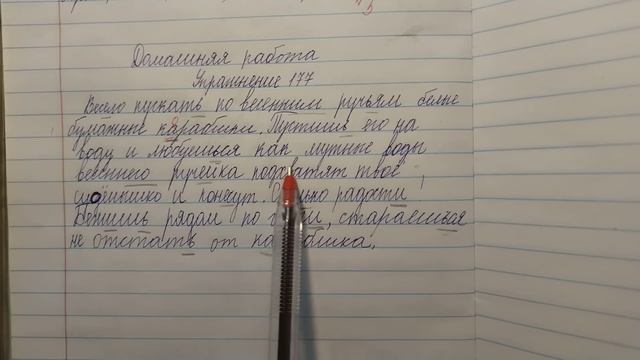 Домашняя работа
Упражнение 177
Весело пускать по весенним ручьям белые
бумажные кораблики. Пустишь его на
воду и любуешься как мутные воды
весеннего ручейка подхватят твоё
и понесут. радости
Бежишь рядом по стараешься
не отстать от